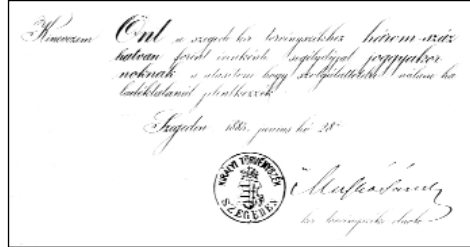 Kinevezem Önt a szegedi kir. törvényszékhez három-száz
hatvan forint évenkénti segélydíjjal joggyakor
noknak s utasítom hogy szolgálattételre nálam ha
ladéktalanul jelentkezzék
Szegeden 1885. junius hó 28
KIRÁLYI TÖRVÉNYSZÉK
SZEGEDEN
kir. törvényszéki elnök